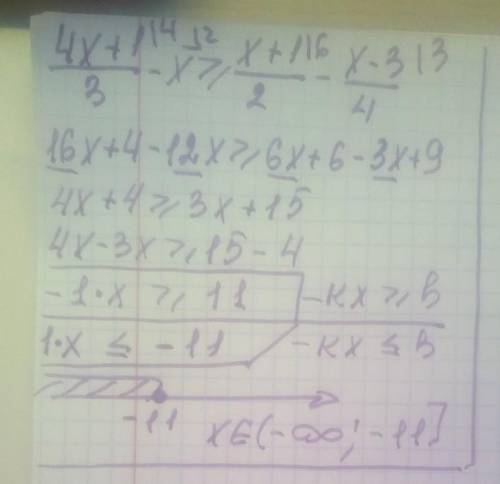 (4x+1)/3 |4 - x |12 ≥ (x+1)/2 |6 - (x-3)/4 |3
16x+4-12x≥6x+6-3x+9
4x+4≥3x+15
4x-3x≥15-4
-1·x ≥ 11   -кx ≥ в
1·x ≤ -11   -кx ≤ в
-11   x∈(-∞; -11]